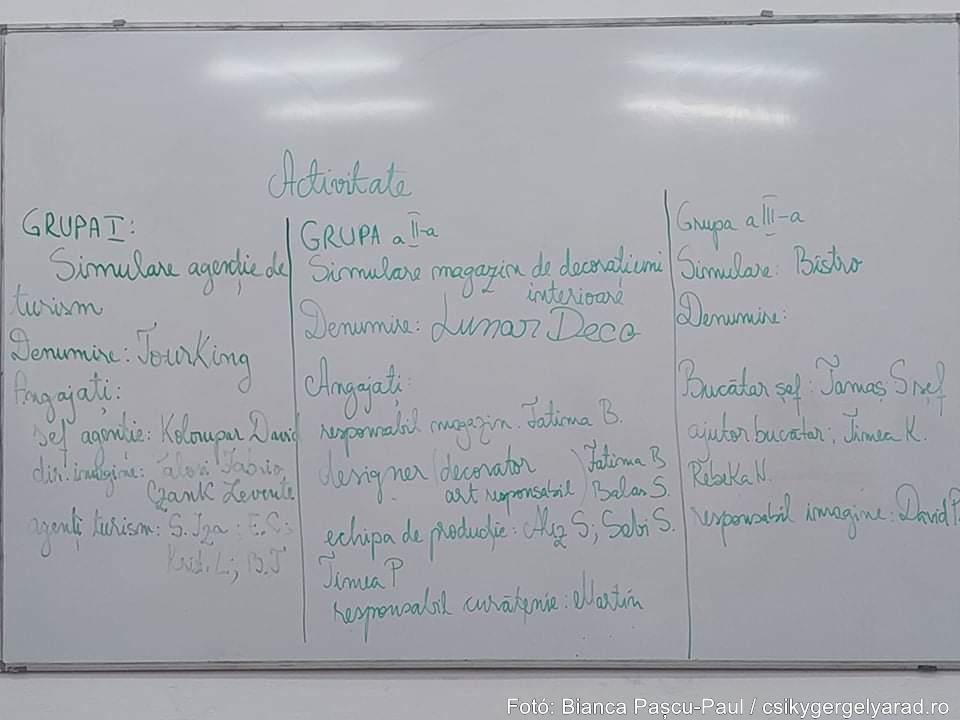 Activitate
GRUPA I:
Simulare agenție de
turism
Denumire: TourKing
Angajați:
șef agenție: Kolompar David
dir. imagine:
Czank Levente
agenți turism: S. Iza; E.C;
Krist. L; B.T
GRUPA a II-a
Simulare magazin de decorațiuni
interioare
Denumire: Lunar Deco
Angajați:
responsabil magazin: Fatima B.
designer (decorator
art responsabil)
Fatima B
Balas S.
echipa de producție: Aliz S; Sabi S.
Timea P
responsabil curățenie: Martin
Grupa a III-a
Simulare: Bistro
Denumire:
Bucătar șef: Tamaș S șef
ajutor bucătar: Timea K.
Rebeka N.
responsabil imagine: David P
Fotó: Bianca Pașcu-Paul / csikygergelyarad.ro